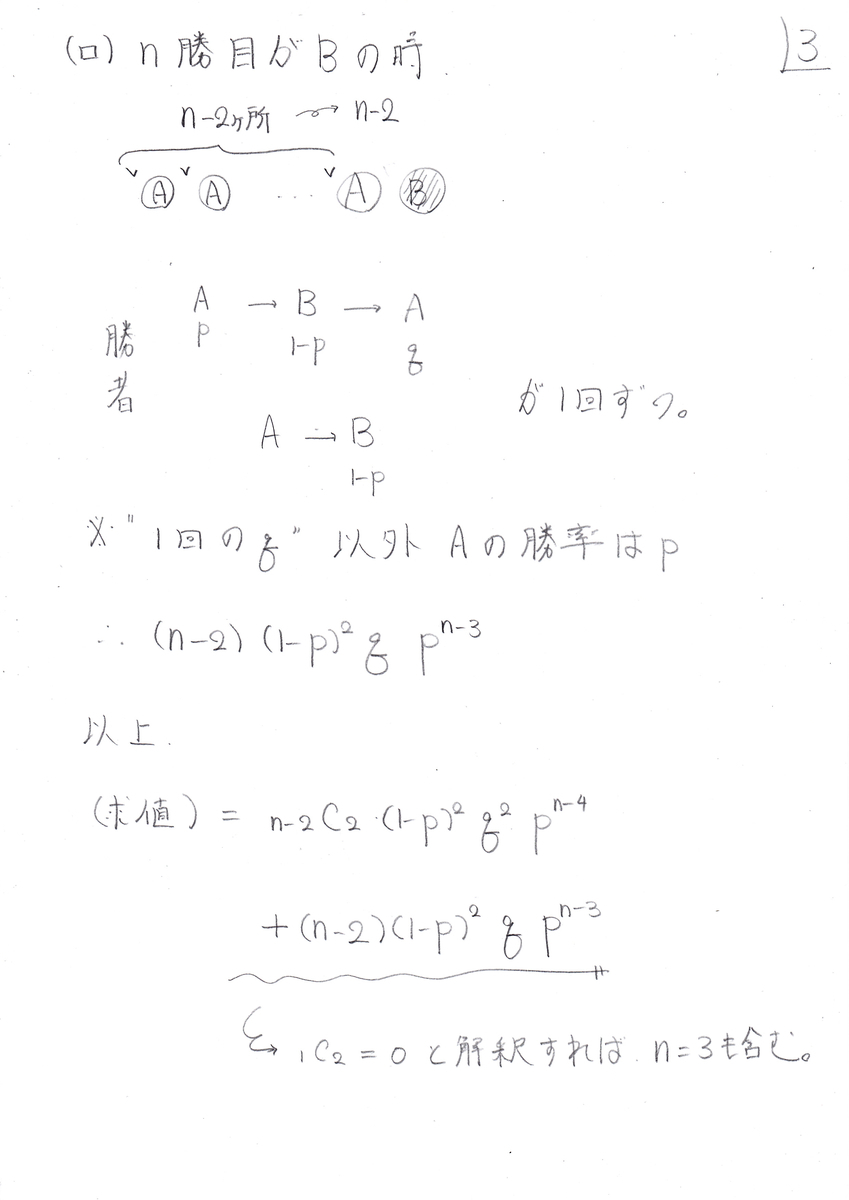 3
(ロ) n 勝目が B の時
n-2ヶ所 〜→ n-2
A A ... A B
勝者
A → B → A
p 1-p q
A → B
1-p
が1回ずつ。
※ "1回の q" 以外 A の勝率は p
∴ (n-2) (1-p)² q p^{n-3}
以上.
(求値) = {}_{n-2}C_2・(1-p)² q² p^{n-4}
+ (n-2)(1-p)² q p^{n-3}
₁C₂ = 0 と解釈すれば n=3も含む。